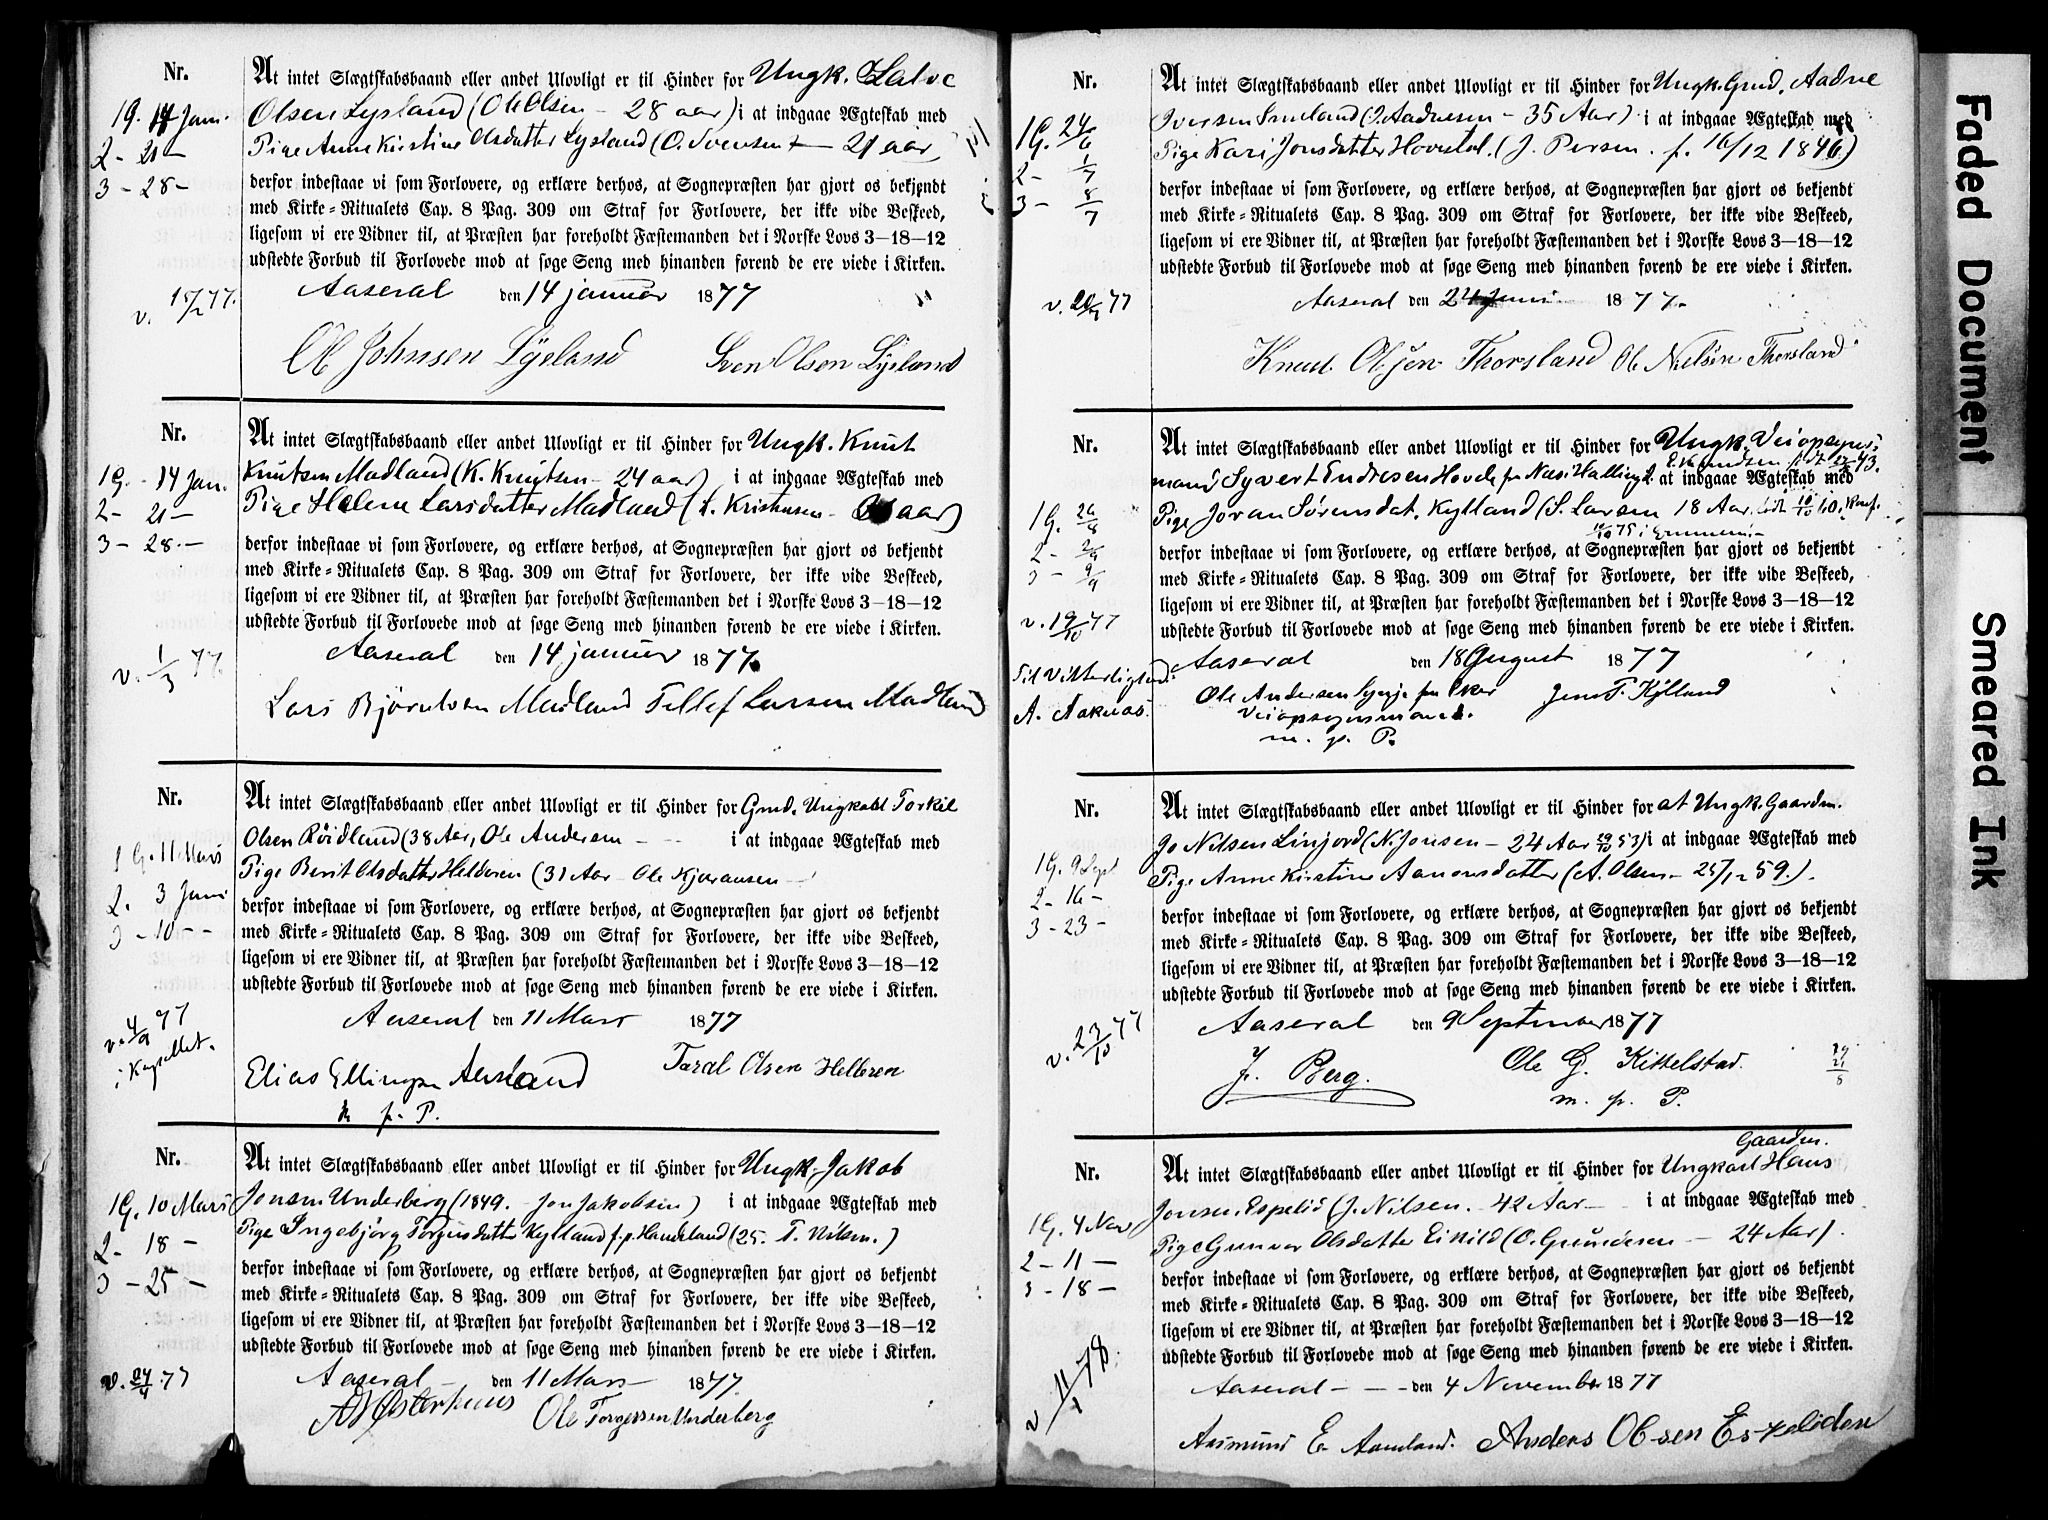 Nr.
At intet Slægtskabsbaand eller andet Ulovligt er til Hinder for Ungk. Salve
1G. 14 Jan.
Olsen Lysland (Ole Olsen - 28 aar) i at indgaae Ægteskab med
2 - 21 -
Pige Anne Kirstine Olsdatter Lysland (O. Svensen - 21 aar)
3 - 28 -
derfor indestaae vi som Forlovere, og erklære derhos, at Sognepræsten har gjort os bekjendt
med Kirke-Ritualets Cap. 8 Pag. 309 om Straf for Forlovere, der ikke vide Beskeed,
ligesom vi ere Vidner til, at Præsten har foreholdt Fæstemanden det i Norske Lovs 3-18-12
udstedte Forbud til Forlovede mod at søge Seng med hinanden førend de ere viede i Kirken.
v. 15/2 77.
Aaseral den 14 januar 1877
Ole Johnsen Lysland Sven Olsen Lysland
Nr.
At intet Slægtskabsbaand eller andet Ulovligt er til Hinder for Ungk. Knut
1G. - 14 Jan.
Knutsen Madland (K. Knutsen - 24 aar) i at indgaae Ægteskab med
2 - 21 -
Pige Helene Larsdatter Madland (L. Kristensen - aar)
3 - 28 -
derfor indestaae vi som Forlovere, og erklære derhos, at Sognepræsten har gjort os bekjendt
med Kirke-Ritualets Cap. 8 Pag. 309 om Straf for Forlovere, der ikke vide Beskeed,
ligesom vi ere Vidner til, at Præsten har foreholdt Fæstemanden det i Norske Lovs 3-18-12
udstedte Forbud til Forlovede mod at søge Seng med hinanden førend de ere viede i Kirken.
v. 1/3 77.
Aaseral den 14 januar 1877.
Lars Bjørulvsen Madland Tellef Larsen Madland
Nr.
At intet Slægtskabsbaand eller andet Ulovligt er til Hinder for Gmd. Ungkarl Torkil
1G. 11 Mars
Olsen Røidland (38 Aar, Ole Andersen - - - i at indgaae Ægteskab med
2. 3 Juni
Pige Berit Olsdatter Helleren (31 Aar - Ole Kjøransen -
3 - 10 - -
derfor indestaae vi som Forlovere, og erklære derhos, at Sognepræsten har gjort os bekjendt
med Kirke-Ritualets Cap. 8 Pag. 309 om Straf for Forlovere, der ikke vide Beskeed,
ligesom vi ere Vidner til, at Præsten har foreholdt Fæstemanden det i Norske Lovs 3-18-12
udstedte Forbud til Forlovede mod at søge Seng med hinanden førend de ere viede i Kirken.
v. 4/9 77
i Kapellet.
Aaseral den 11 Mars 1877
Elias Ellingsen Aasland Taral Olsen Helleren
m. p. P.
Nr.
At intet Slægtskabsbaand eller andet Ulovligt er til Hinder for Ungk. Jakob
1G. 10 Mars
Jonsen Underberg (1849. - Jon Jakobsen) i at indgaae Ægteskab med
2 - 18 -
Pige Ingebjørg Torgusdatter Kylland f. p. Hameland (25. T. Nilsen.)
3 - 25 -
derfor indestaae vi som Forlovere, og erklære derhos, at Sognepræsten har gjort os bekjendt
med Kirke-Ritualets Cap. 8 Pag. 309 om Straf for Forlovere, der ikke vide Beskeed,
ligesom vi ere Vidner til, at Præsten har foreholdt Fæstemanden det i Norske Lovs 3-18-12
udstedte Forbud til Forlovede mod at søge Seng med hinanden førend de ere viede i Kirken.
v. 24/4 77
Aaseral - den 11 Mars 1877.
Østerhuus Ole Torgessen Underberg
Nr.
At intet Slægtskabsbaand eller andet Ulovligt er til Hinder for Ungk. Gmd. Aadne
1G. 24/6
Iversen Smeland (I. Aadnesen - 35 Aar) i at indgaae Ægteskab med
2 - 1/7
Pige Kari Jonsdatter Hovstol. (J. Persen. f. 16/12 1846)
3 - 8/7
derfor indestaae vi som Forlovere, og erklære derhos, at Sognepræsten har gjort os bekjendt
med Kirke-Ritualets Cap. 8 Pag. 309 om Straf for Forlovere, der ikke vide Beskeed,
ligesom vi ere Vidner til, at Præsten har foreholdt Fæstemanden det i Norske Lovs 3-18-12
udstedte Forbud til Forlovede mod at søge Seng med hinanden førend de ere viede i Kirken.
Aaseral den 24 Juni 1877.
Knud Olsen Thorsland Ole Nielsen Thorsland
Nr.
At intet Slægtskabsbaand eller andet Ulovligt er til Hinder for Ungk. Veiopsyns
mand Syvert Endresen Hovde fra Næs i Hallingd. at indgaae Ægteskab med
1G. 26/8
Pige Joran Sørensdat. Kylland (S. Larsen 18 Aar. født 10/10 60, Konf.
2 - 2/9
derfor indestaae vi som Forlovere, og erklære derhos, at Sognepræsten har gjort os bekjendt
3 - 9/9
med Kirke-Ritualets Cap. 8 Pag. 309 om Straf for Forlovere, der ikke vide Beskeed,
ligesom vi ere Vidner til, at Præsten har foreholdt Fæstemanden det i Norske Lovs 3-18-12
v. 19/10 77
udstedte Forbud til Forlovede mod at søge Seng med hinanden førend de ere viede i Kirken.
Til Vitterlighed:
Aaseral den 18 August 1877
A. Aaknæs.
Ole Andersen fra Skar Jens T. Kylland
Veiopsynsmand.
m. p. P.
Nr.
At intet Slægtskabsbaand eller andet Ulovligt er til Hinder for at Ungk. Gaardm.
Jo Nilsen Linjord (N. Jonsen - 24 Aar 29/10 53) i at indgaae Ægteskab med
1G. 9 Sept
Pige Anne Kirstine Aanonsdatter (A. Olsen - 25/12 59.)
2 - 16 -
derfor indestaae vi som Forlovere, og erklære derhos, at Sognepræsten har gjort os bekjendt
3 - 23 -
med Kirke-Ritualets Cap. 8 Pag. 309 om Straf for Forlovere, der ikke vide Beskeed,
ligesom vi ere Vidner til, at Præsten har foreholdt Fæstemanden det i Norske Lovs 3-18-12
udstedte Forbud til Forlovede mod at søge Seng med hinanden førend de ere viede i Kirken.
v. 23/10 77
Aaseral den 9 September 1877
J. Berg. Ole G. Kittelstad.
m. p. P.
Gaardm.
Nr.
At intet Slægtskabsbaand eller andet Ulovligt er til Hinder for Ungkarl Hans
1G. 4 Nov
Jonsen Espeliö (J. Nilsen. - 42 Aar - i at indgaae Ægteskab med
Pige Gunvor Olsdatter Eikild (O. Gundersen - 24 Aar).
2 - 11 -
derfor indestaae vi som Forlovere, og erklære derhos, at Sognepræsten har gjort os bekjendt
3 - 18 -
med Kirke-Ritualets Cap. 8 Pag. 309 om Straf for Forlovere, der ikke vide Beskeed,
ligesom vi ere Vidner til, at Præsten har foreholdt Fæstemanden det i Norske Lovs 3-18-12
udstedte Forbud til Forlovede mod at søge Seng med hinanden førend de ere viede i Kirken.
v 11/1 78.
Aaseral - - - den 4 November 1877
Aasmund E. Aamland. Anders Olsen Espeliden
Faded Document
Smeared Ink